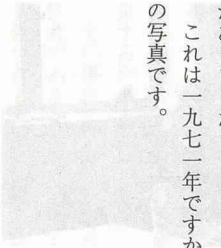 これは一九七一年ですか
の写真です。